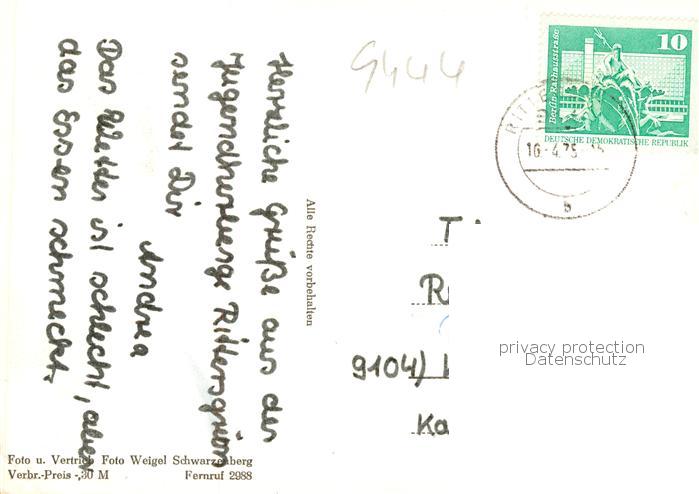 Herzliche Grüße aus der
Jugendherberge Rittersgrün
sendet Dir
Andrea
Das Wetter ist schlecht, aber
das Essen schmeckt.
Alle Rechte vorbehalten
Foto u. Vertrieb Foto Weigel Schwarzenberg
Verbr.-Preis -,30 M Fernruf 2988
9444
10
Berlin-Rathausstraße
DEUTSCHE DEMOKRATISCHE REPUBLIK
16.-4.75
b
9104)
privacy protection
Datenschutz